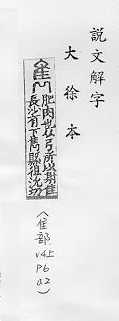 說文解字
大徐本
雋
肥肉也从弓所以射隹
長沙有下雋縣徂沇切
〈隹部
v4上
p6
a2〉